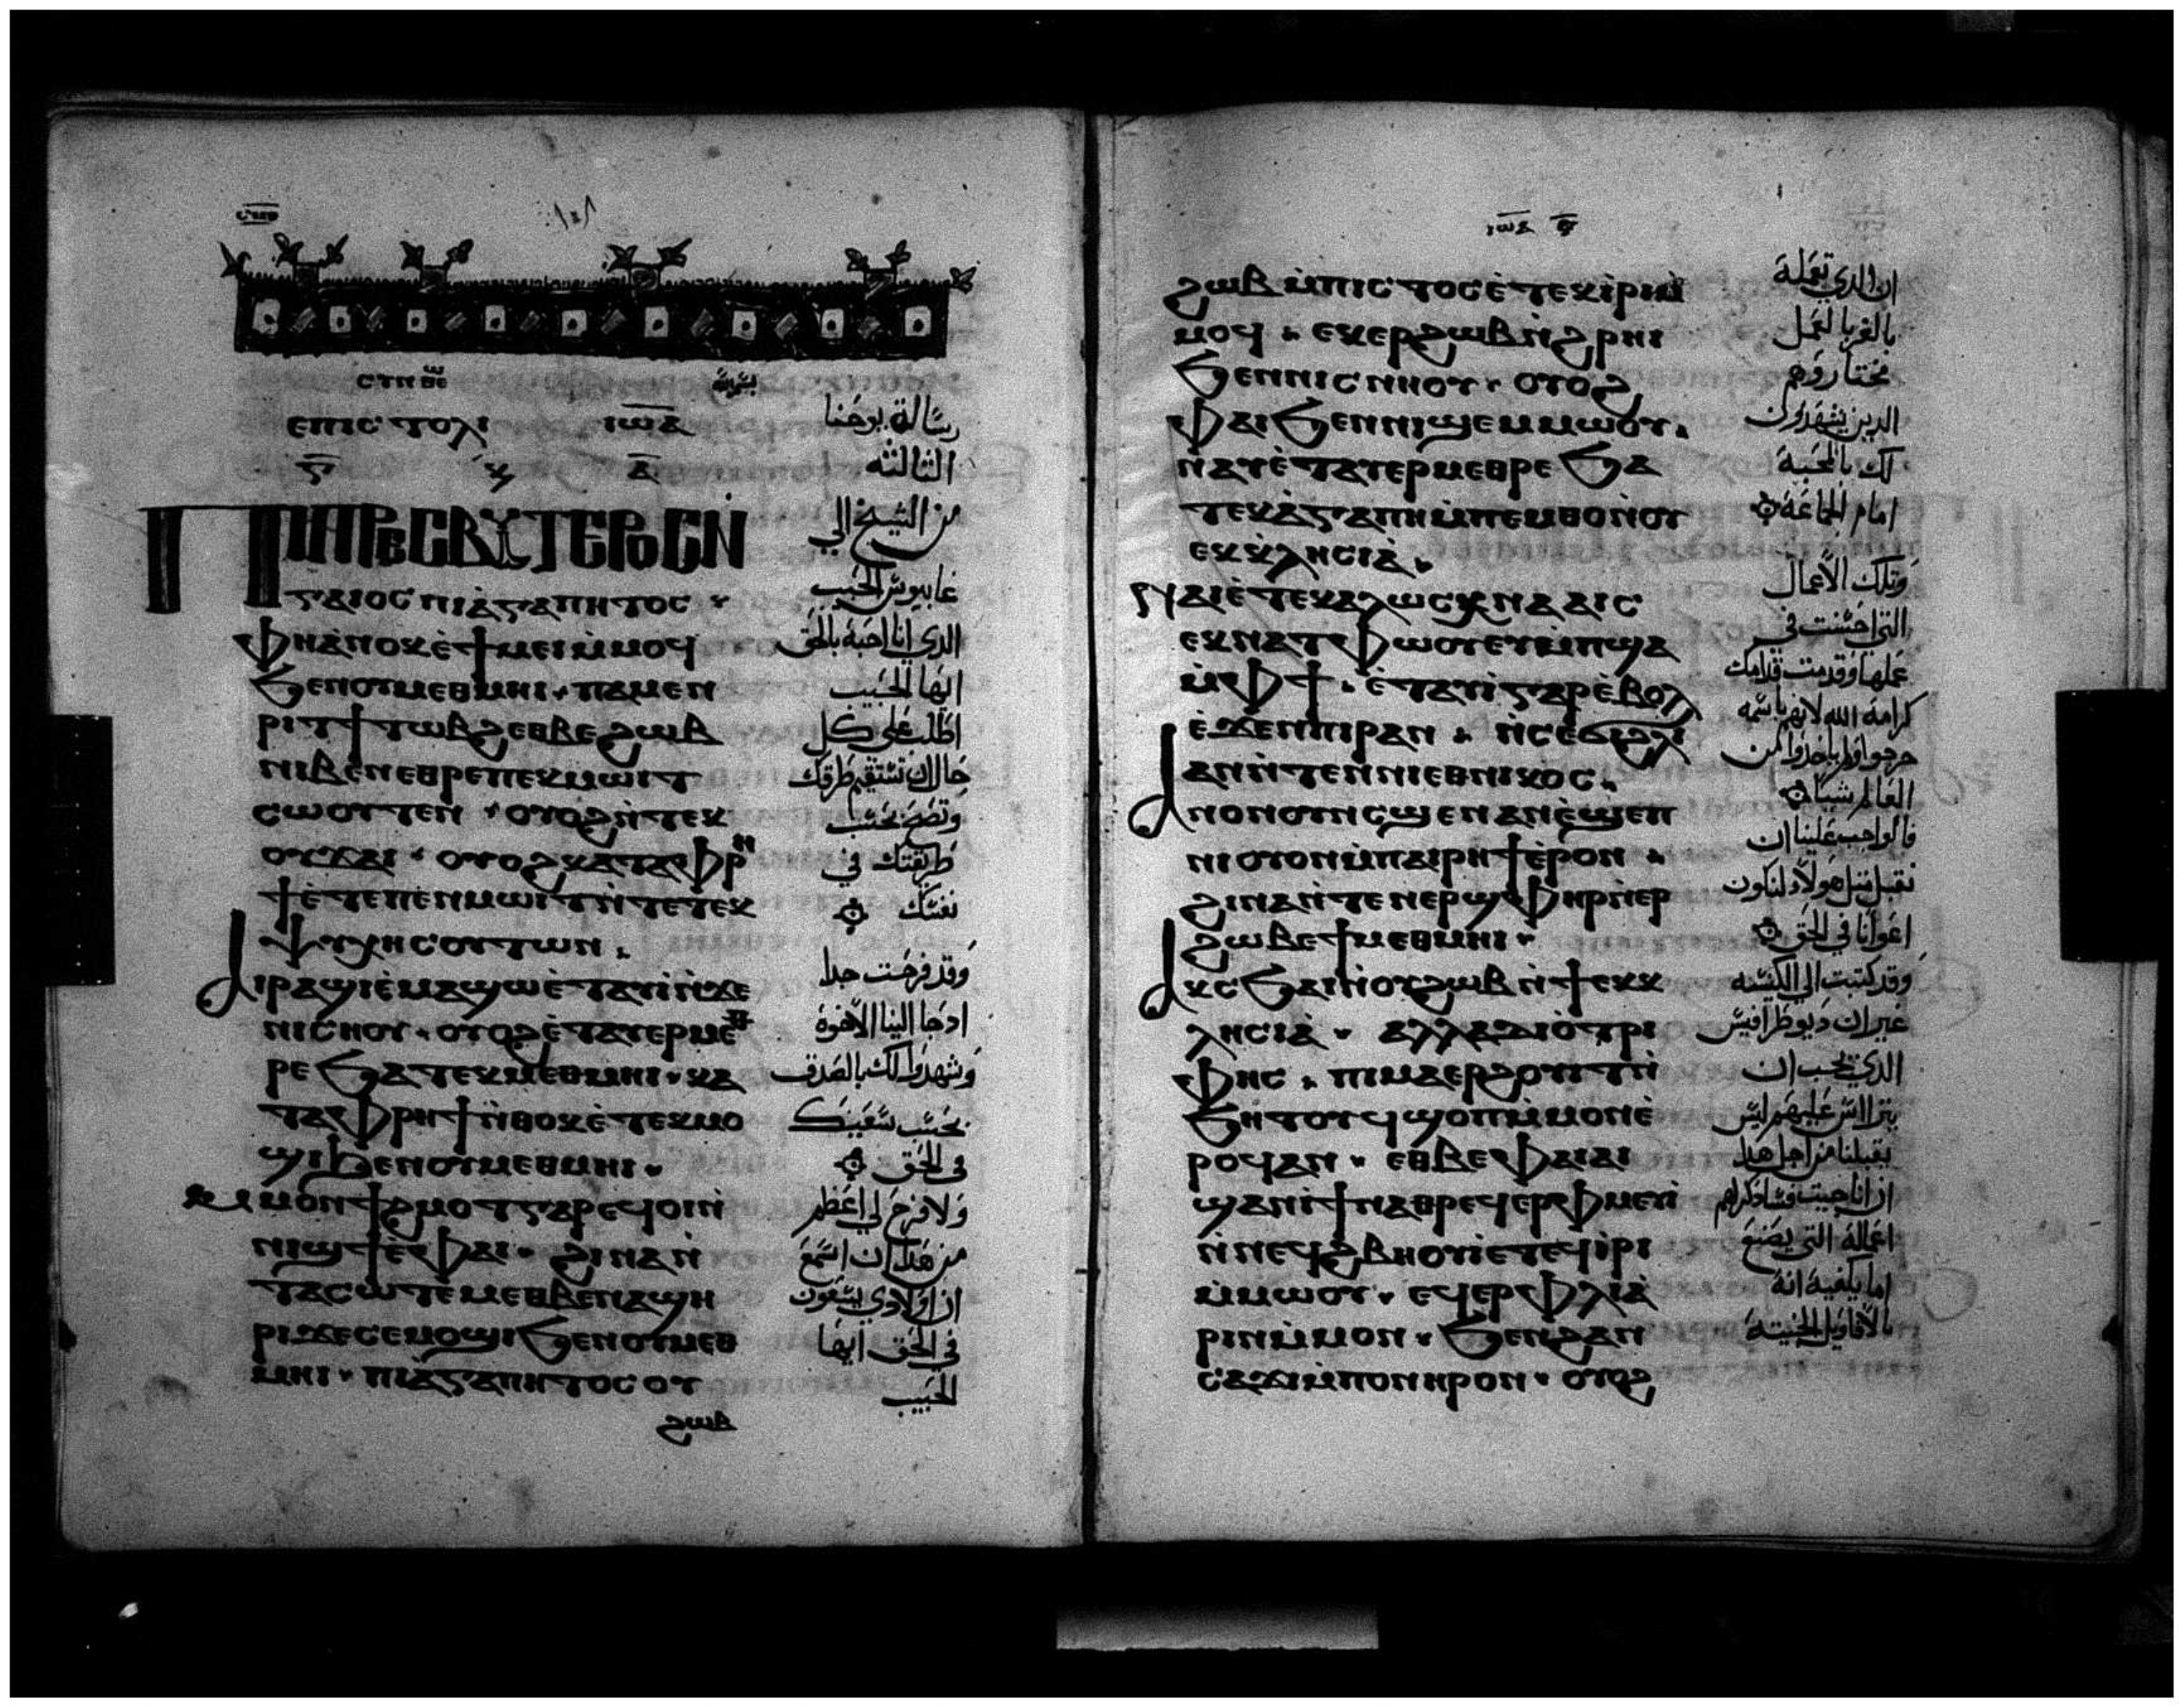 ⲥⲩⲛ ⲑⲉⲱ
ⲉⲡⲓⲥⲧⲟⲗⲓ ⲓⲱⲁ
ⲅ̅ ⲕ ⲁ̅
ⲠⲠⲢⲈⲤⲂⲨⲦⲈⲢⲞⲤⲚ̀
ⲅⲁⲓⲟⲥ ⲡⲓⲁ̀ⲅⲁⲡⲏⲧⲟⲥ ·
ⲫⲏⲁ̀ⲛⲟⲕⲉ̀ϯⲙⲉⲓⲙ̀ⲙⲟϥ
ϧⲉⲛⲟⲩⲙⲉⲑⲙⲏⲓ · ⲡⲁⲙⲉⲛ
ⲣⲓⲧϯⲧⲱⲃϩⲉⲑⲃⲉϩⲱⲃ
ⲛⲓⲃⲉⲛⲉⲑⲣⲉⲡⲉⲕⲙⲱⲓⲧ
ⲥⲱⲟⲩⲧⲉⲛ · ⲟⲩⲟϩⲛ̀ⲧⲉⲕ
ⲟⲩϫⲁⲓ · ⲟⲩⲟϩⲕⲁⲧⲁⲫⲣⲏ
ϯⲉ̀ⲧⲉⲡⲉⲛⲙⲱⲓⲧⲛ̀ⲧⲉⲧⲉⲕ
ⲯⲩⲭⲏⲥⲟⲩⲧⲱⲛ ·
ⲁⲓⲣⲁϣⲓⲉ̀ⲙⲁϣⲱⲉ̀ⲧⲁⲩⲓ̀ⲛ̀ϫⲉ
ⲛⲓⲥⲛⲟⲩ · ⲟⲩⲟϩⲉ̀ⲧⲁⲩⲉⲣⲙⲉⲑ
ⲣⲉ ϧⲁⲧⲉⲕⲙⲉⲑⲙⲏⲓ · ⲕⲁ
ⲧⲁⲫⲣⲏϯⲛ̀ⲑⲟⲕⲉ̀ⲧⲉⲕⲙⲟ
ϣⲓϧⲉⲛⲟⲩⲙⲉⲑⲙⲏⲓ ·
ⲙⲙⲟⲛϯϩⲙⲟⲧⲅⲁⲣⲉϥⲟⲓⲛ̀
ⲛⲓϣϯⲉ̀ⲫⲁⲓ · ϩⲓⲛⲁⲛ̀
ⲧⲁⲥⲱⲧⲉⲙⲉⲑⲃⲉⲛⲁϣⲏ
ⲣⲓϫⲉⲥⲉⲙⲟϣⲓϧⲉⲛⲟⲩⲙⲉⲑ
ⲙⲏⲓ · ⲡⲓⲁ̀ⲅⲁⲡⲏⲧⲟⲥ ⲟⲩ
ϩⲱⲃ
رسالة يوحنا
الثالثه
من الشيخ الي
غابيوش الحبيب
الذي انا احبة بالحق
ايها الحبيب
اطلب علي كل
حال ان تستقيم طرقك
وتصح بحسب
طريقتك في
نفسك
وقد فرحت جدا
اذ جا الينا الاخوة
وشهدوا لك بالصدق
بحسب سعيك
في الحق
ولا فرح لي اعظم
من هذا ان اسمع
ان اولادي يسعون
في الحق ايها
الحبيب
ⲓⲱⲁ ⲅ̅
ϩⲱⲃ ⲙ̀ⲡⲓⲥⲧⲟⲥⲉ̀ⲧⲉⲕⲓ̀ⲣⲓⲙ̀
ⲙⲟϥ · ⲉⲕⲉⲣϩⲱⲃⲛ̀ϩⲣⲏⲓ
ϧⲉⲛⲛⲓⲥⲛⲏⲟⲩ · ⲟⲩⲟϩ
ⲫⲁⲓϧⲉⲛⲛⲓϣⲉⲙⲙⲱⲟⲩ ·
ⲛⲁⲩⲉ̀ⲧⲁⲩⲉⲣⲙⲉⲑⲣⲉ ϧⲁ
ⲧⲉⲕⲁ̀ⲅⲁⲡⲏⲙ̀ⲡⲉⲙⲑⲟⲛ̀ⲟⲩ
ⲉⲕⲕⲗⲏⲥⲓⲁ̀ ·
ⲛⲁⲓⲉ̀ⲧⲉⲕⲁⲗⲱⲥⲭⲛⲁⲁⲓⲥ
ⲉⲕⲛⲁⲧⲫⲱⲟⲩⲉⲩⲙ̀ⲡϣⲁ
ⲙ̀ⲫϯ · ⲉ̀ⲧⲁⲩⲓ̀ⲅⲁⲣⲉ̀ⲃⲟⲗ
ⲉ̀ϫⲉⲛⲡⲓⲣⲁⲛ · ⲛ̀ⲥⲉϭⲓϩⲗⲓ
ⲁⲛⲛ̀ⲧⲉⲛⲛⲓⲉⲑⲛⲓⲕⲟⲥ ·
ⲁⲛⲟⲛⲟⲩⲛⲥϣⲉⲛⲁⲛⲉ̀ϣⲉⲡ
ⲛⲓⲟⲩⲟⲛⲙ̀ⲡⲁⲓⲣⲏϯⲉ̀ⲣⲟⲛ ·
ϩⲓⲛⲁⲛ̀ⲧⲉⲛⲉⲣϣⲫⲏⲣⲛ̀ⲉⲣ
ϩⲱⲃⲉϯⲙⲉⲑⲙⲏⲓ ·
ⲁⲕⲥϧⲁⲓⲛ̀ⲟⲩϩⲱⲃⲛ̀ϯⲉⲕⲕ
ⲗⲏⲥⲓⲁ̀ · ⲁⲗⲗⲁⲇⲓⲟ̀ⲧⲣⲓ
ⲫⲏⲥ · ⲡⲓⲙⲁⲉⲣϩⲟⲩⲓⲧⲛ̀
ϧⲏⲧⲟⲩϥϣⲟⲡⲙ̀ⲙⲟⲛⲉ̀
ⲣⲟϥⲁⲛ · ⲉⲑⲃⲉⲫⲁⲓⲁⲓ
ϣⲁⲛⲓ̀ϯⲛⲁⲑⲣⲉϥⲉⲣⲫⲙⲉⲩⲓ̀
ⲛ̀ⲛⲉϥϩⲃⲏⲟⲩⲓⲉⲧⲉϥⲓ̀ⲣⲓ
ⲙ̀ⲙⲱⲟⲩ · ⲉϥⲉⲣⲫⲗⲓⲁ̀
ⲣⲓⲛⲙ̀ⲙⲟⲛ · ϧⲉⲛϩⲁⲛ
ⲥⲁϫⲓⲙ̀ⲡⲟⲛⲏⲣⲟⲛ · ⲟⲩⲟϩ
ان الذي تعمله
الذين يشهدون
لك بالمحبة
امام الجماعة
وتلك الاعمال
التي احسنت في
عملها وقدمت قدامك
كرامة الله لانهم باسمه
خرجوا ولم ياخذوا من
العالم شيئا
فالواجب علينا ان
نقبل مثل هولاء لنكون
اعوانا في الحق
وقد كتبت الي الكنيسه
غير ان ديوطرافيس
الذي يحب ان
يتراس عليهم ليس
يقبلنا من اجل هذا
ان انا جيت فساذكرهم
اعماله التي يصنع
اما يكفية انه
بالاقاويل الخبيثة